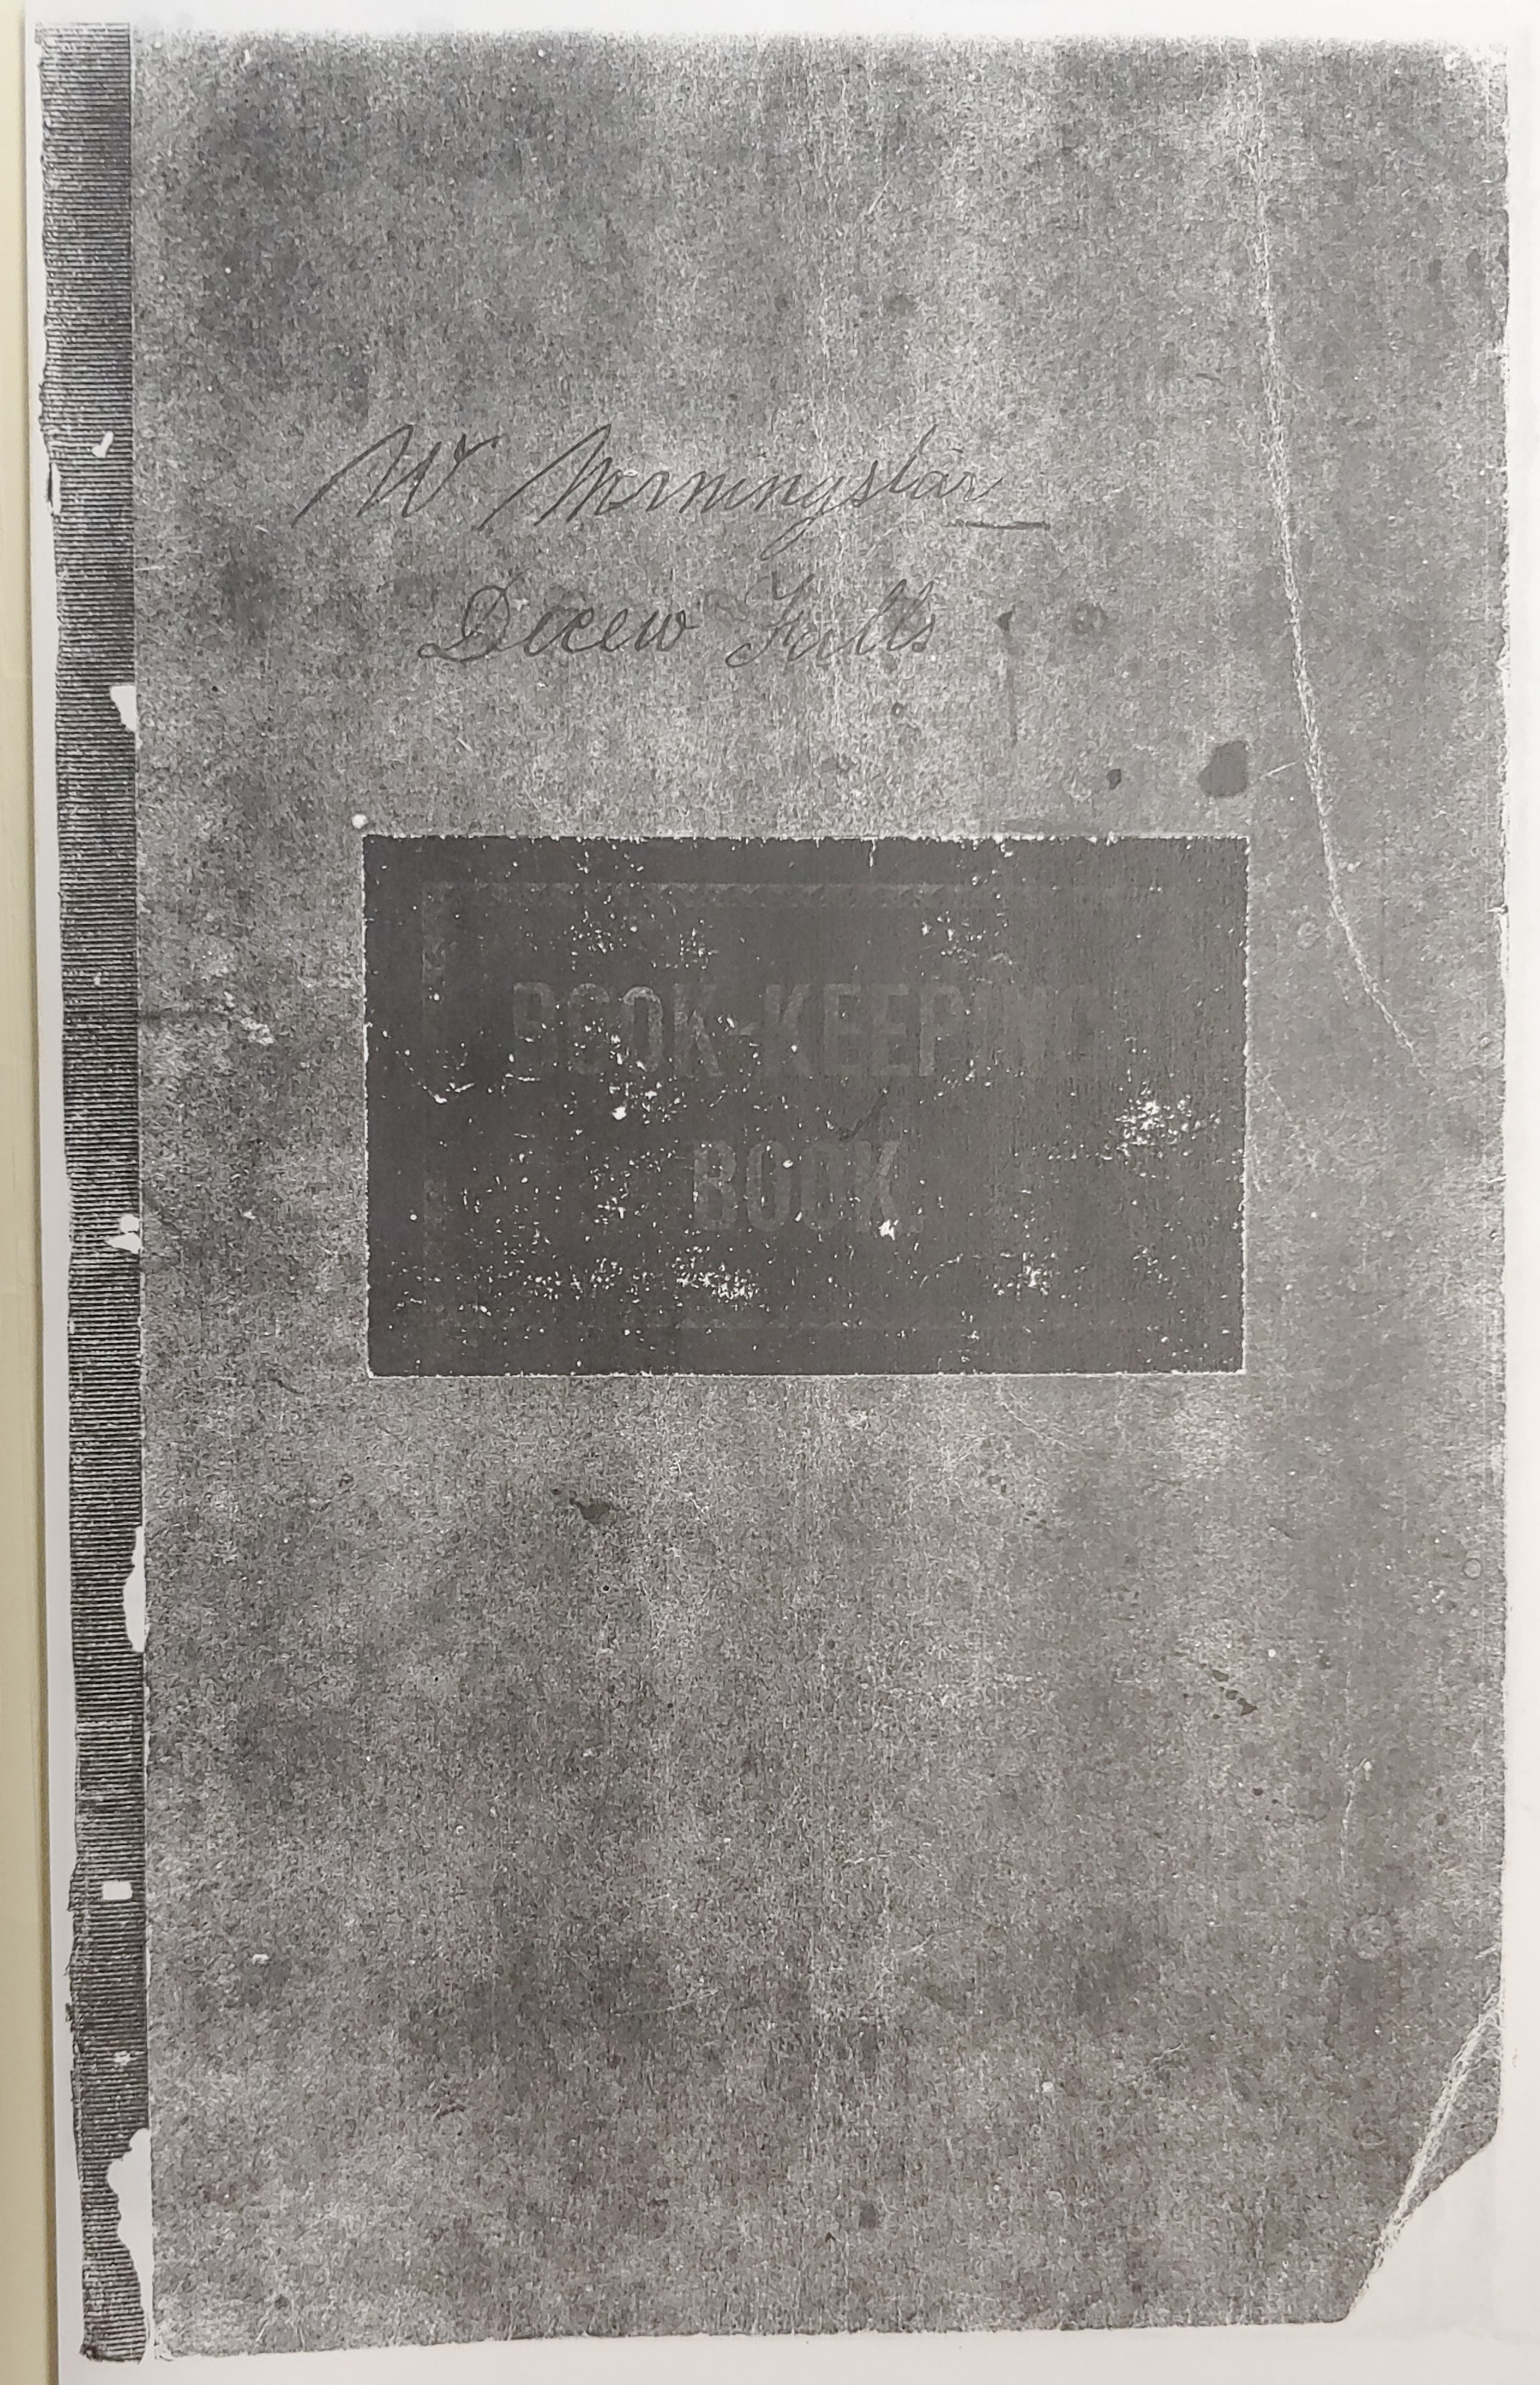 W Morningstar
Decew Falls
BOOK-KEEPING
BOOK.